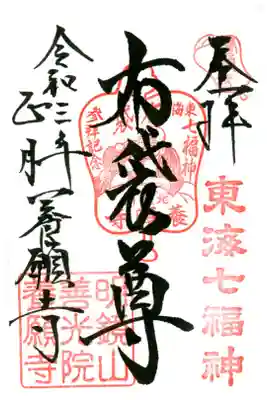 奉拝
東海七福神
布袋尊
東海七福神
参拝記念
令和三年
正月
養願寺
明鏡山
善光院
養願寺